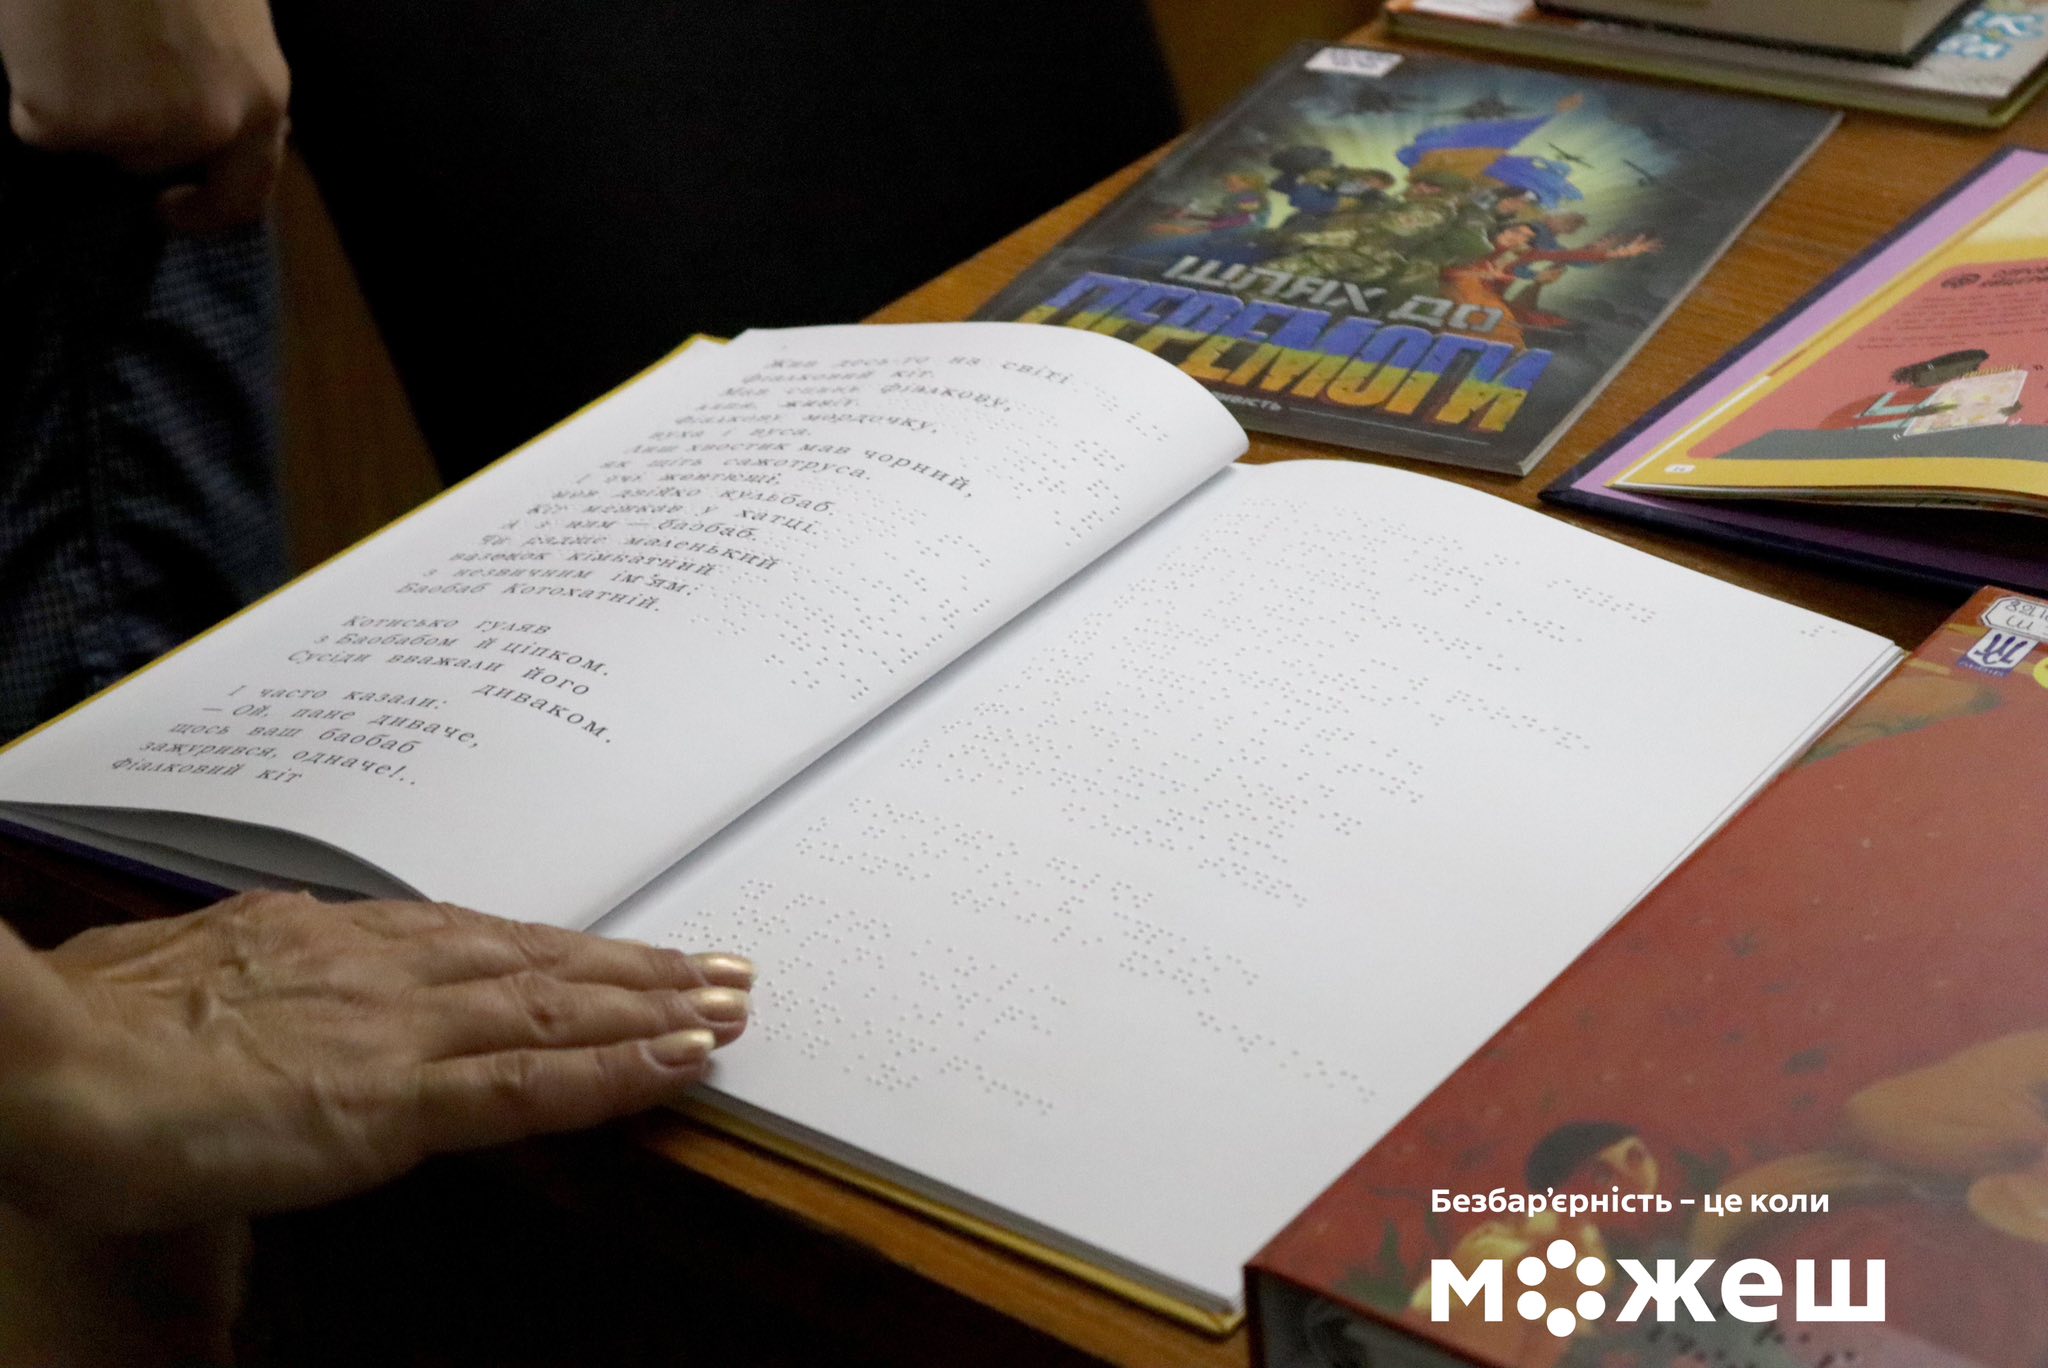 Жив десь-то на світі
фіалковий кіт.
Мав спинку фіалкову,
лапи, живіт.
Фіалкову мордочку,
вуха і вуса.
Лиш хвостик мав чорний,
як щіть сажотруса.
І очі жовтющі,
мов двійко кульбаб.
Кіт мешкав у хатці.
А з ним — баобаб.
Чи радше маленький
вазонок кімнатний
з незвичним ім'ям:
Баобаб Котохатній.
Котисько гуляв
з Баобабом й ціпком.
Сусіди вважали його
диваком.
І часто казали:
— Ой, пане диваче,
щось ваш баобаб
зажурився, одначе!..
Фіалковий кіт
ШЛЯХ ДО
ПЕРЕМОГИ
Безбар'єрність – це коли
можеш